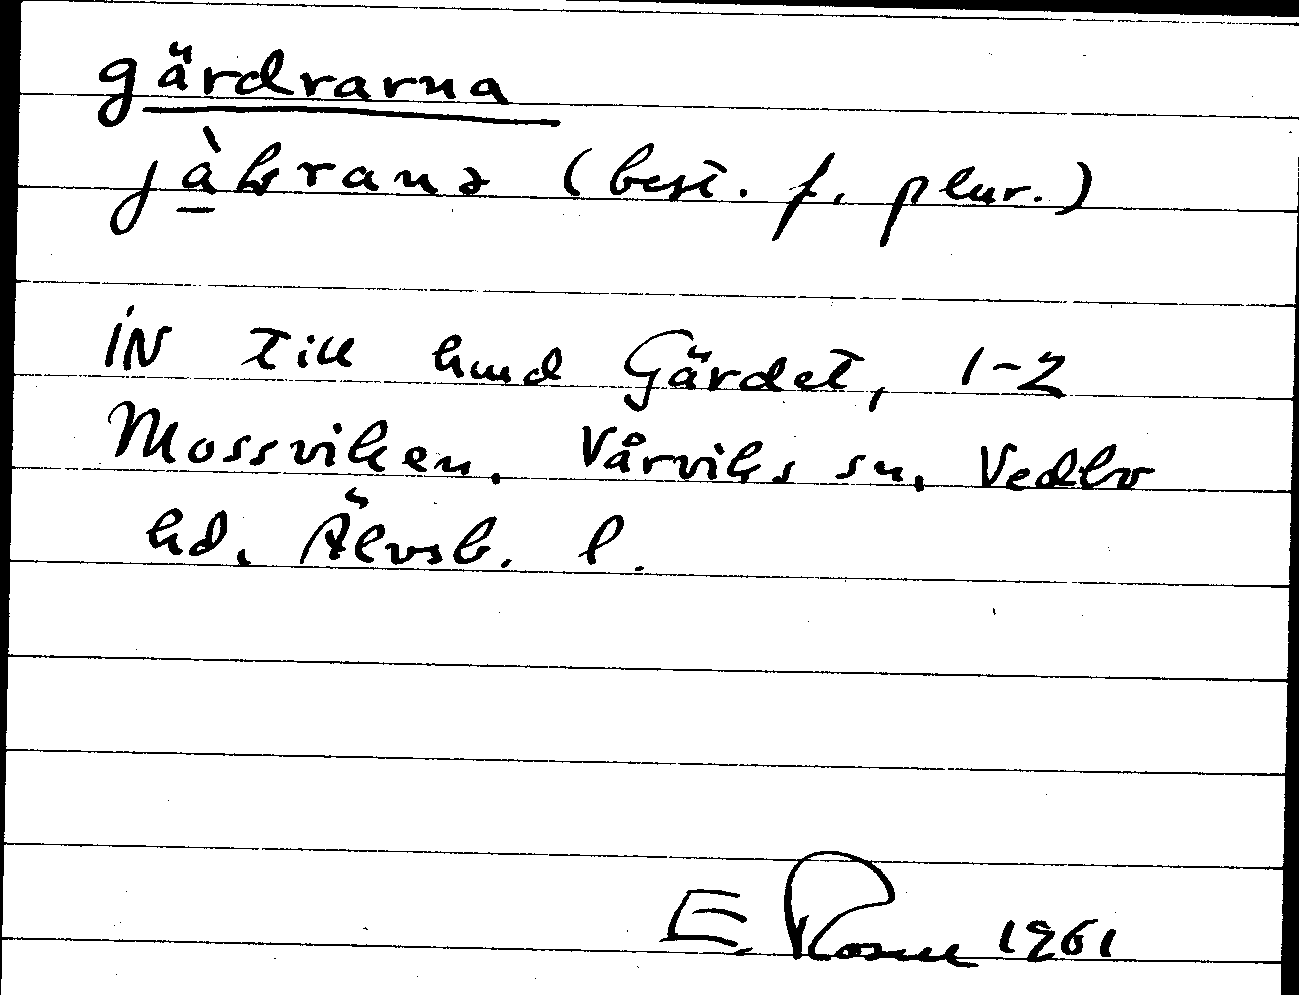 gärdrarna
(best. f. plur.)
IN till hmd Gärdet, 1-2
Mossviken, Vårviks sn, Vedbo
hd, Älvsb. l.
E. Rosell 1961